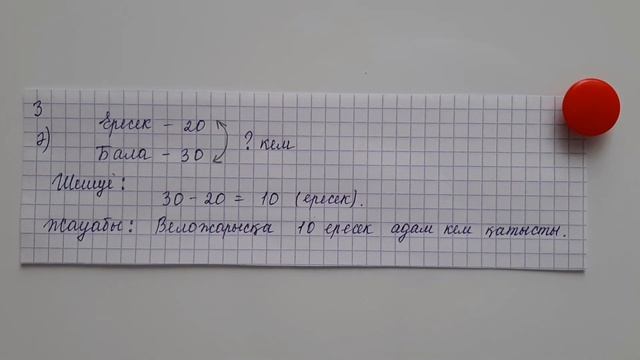 3
ә) Ересек – 20
Бала – 30 ? кем
Шешуі:
30 – 20 = 10 (ересек).
Жауабы: Веложарысқа 10 ересек адам кем қатысты.